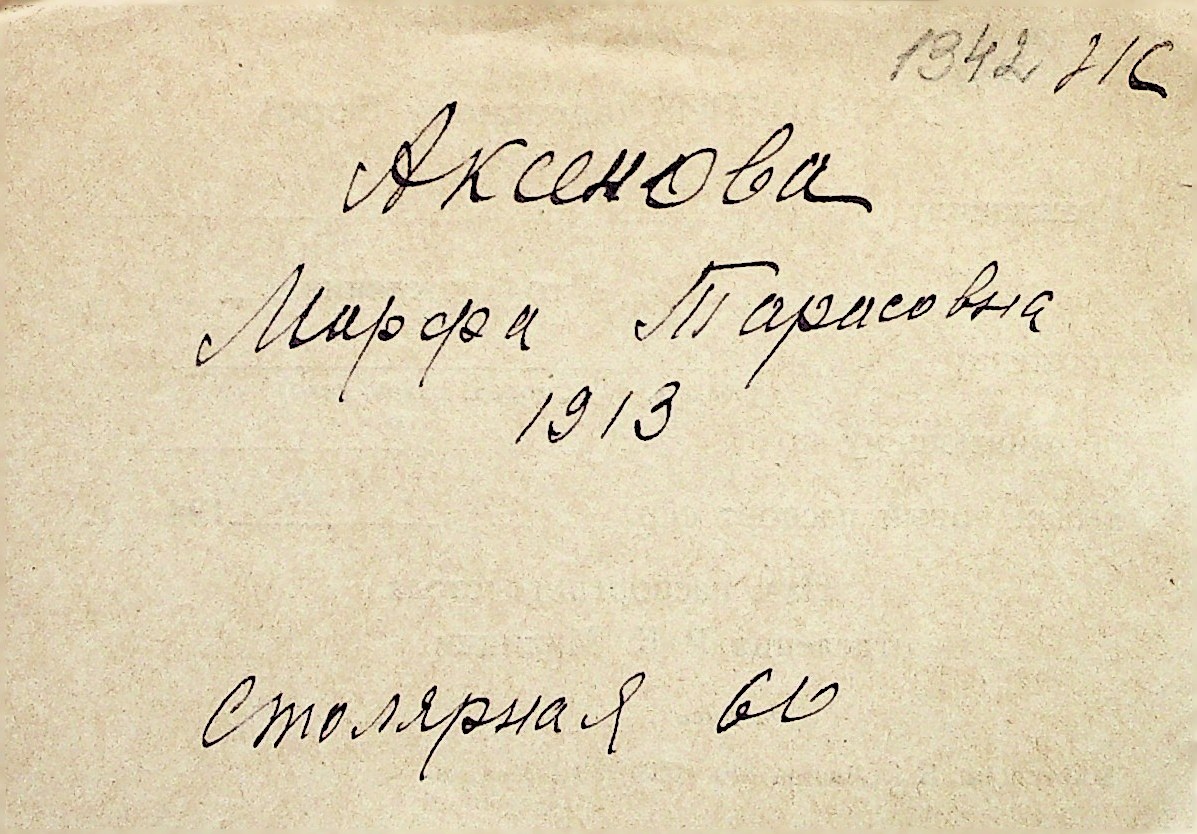 1342
Аксенова
Марфа Тарасовна
1913
Столярная